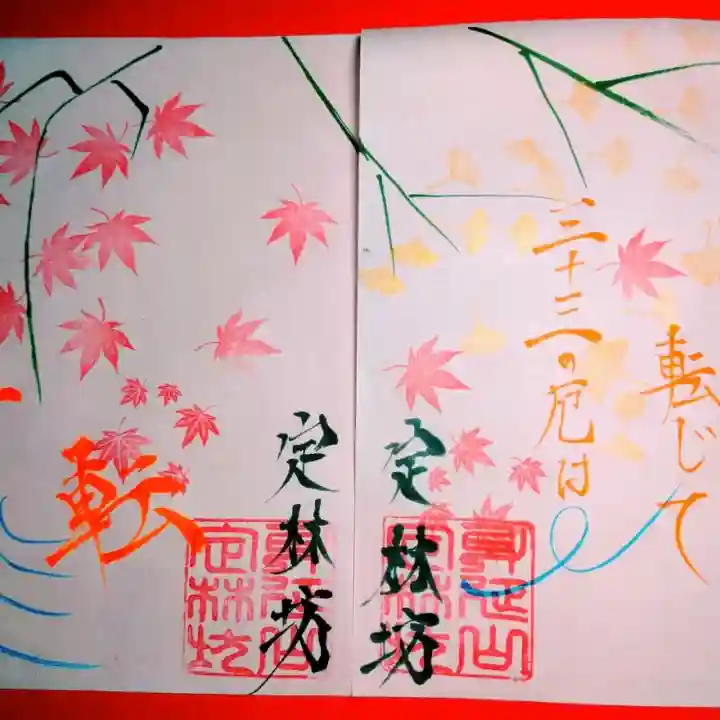 転じて
三十三の厄は
定林坊
身延山
定林坊
一
転
定林坊
身延山
定林坊